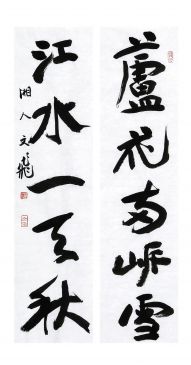 蘆花两岸雪
江水一天秋
湘人文